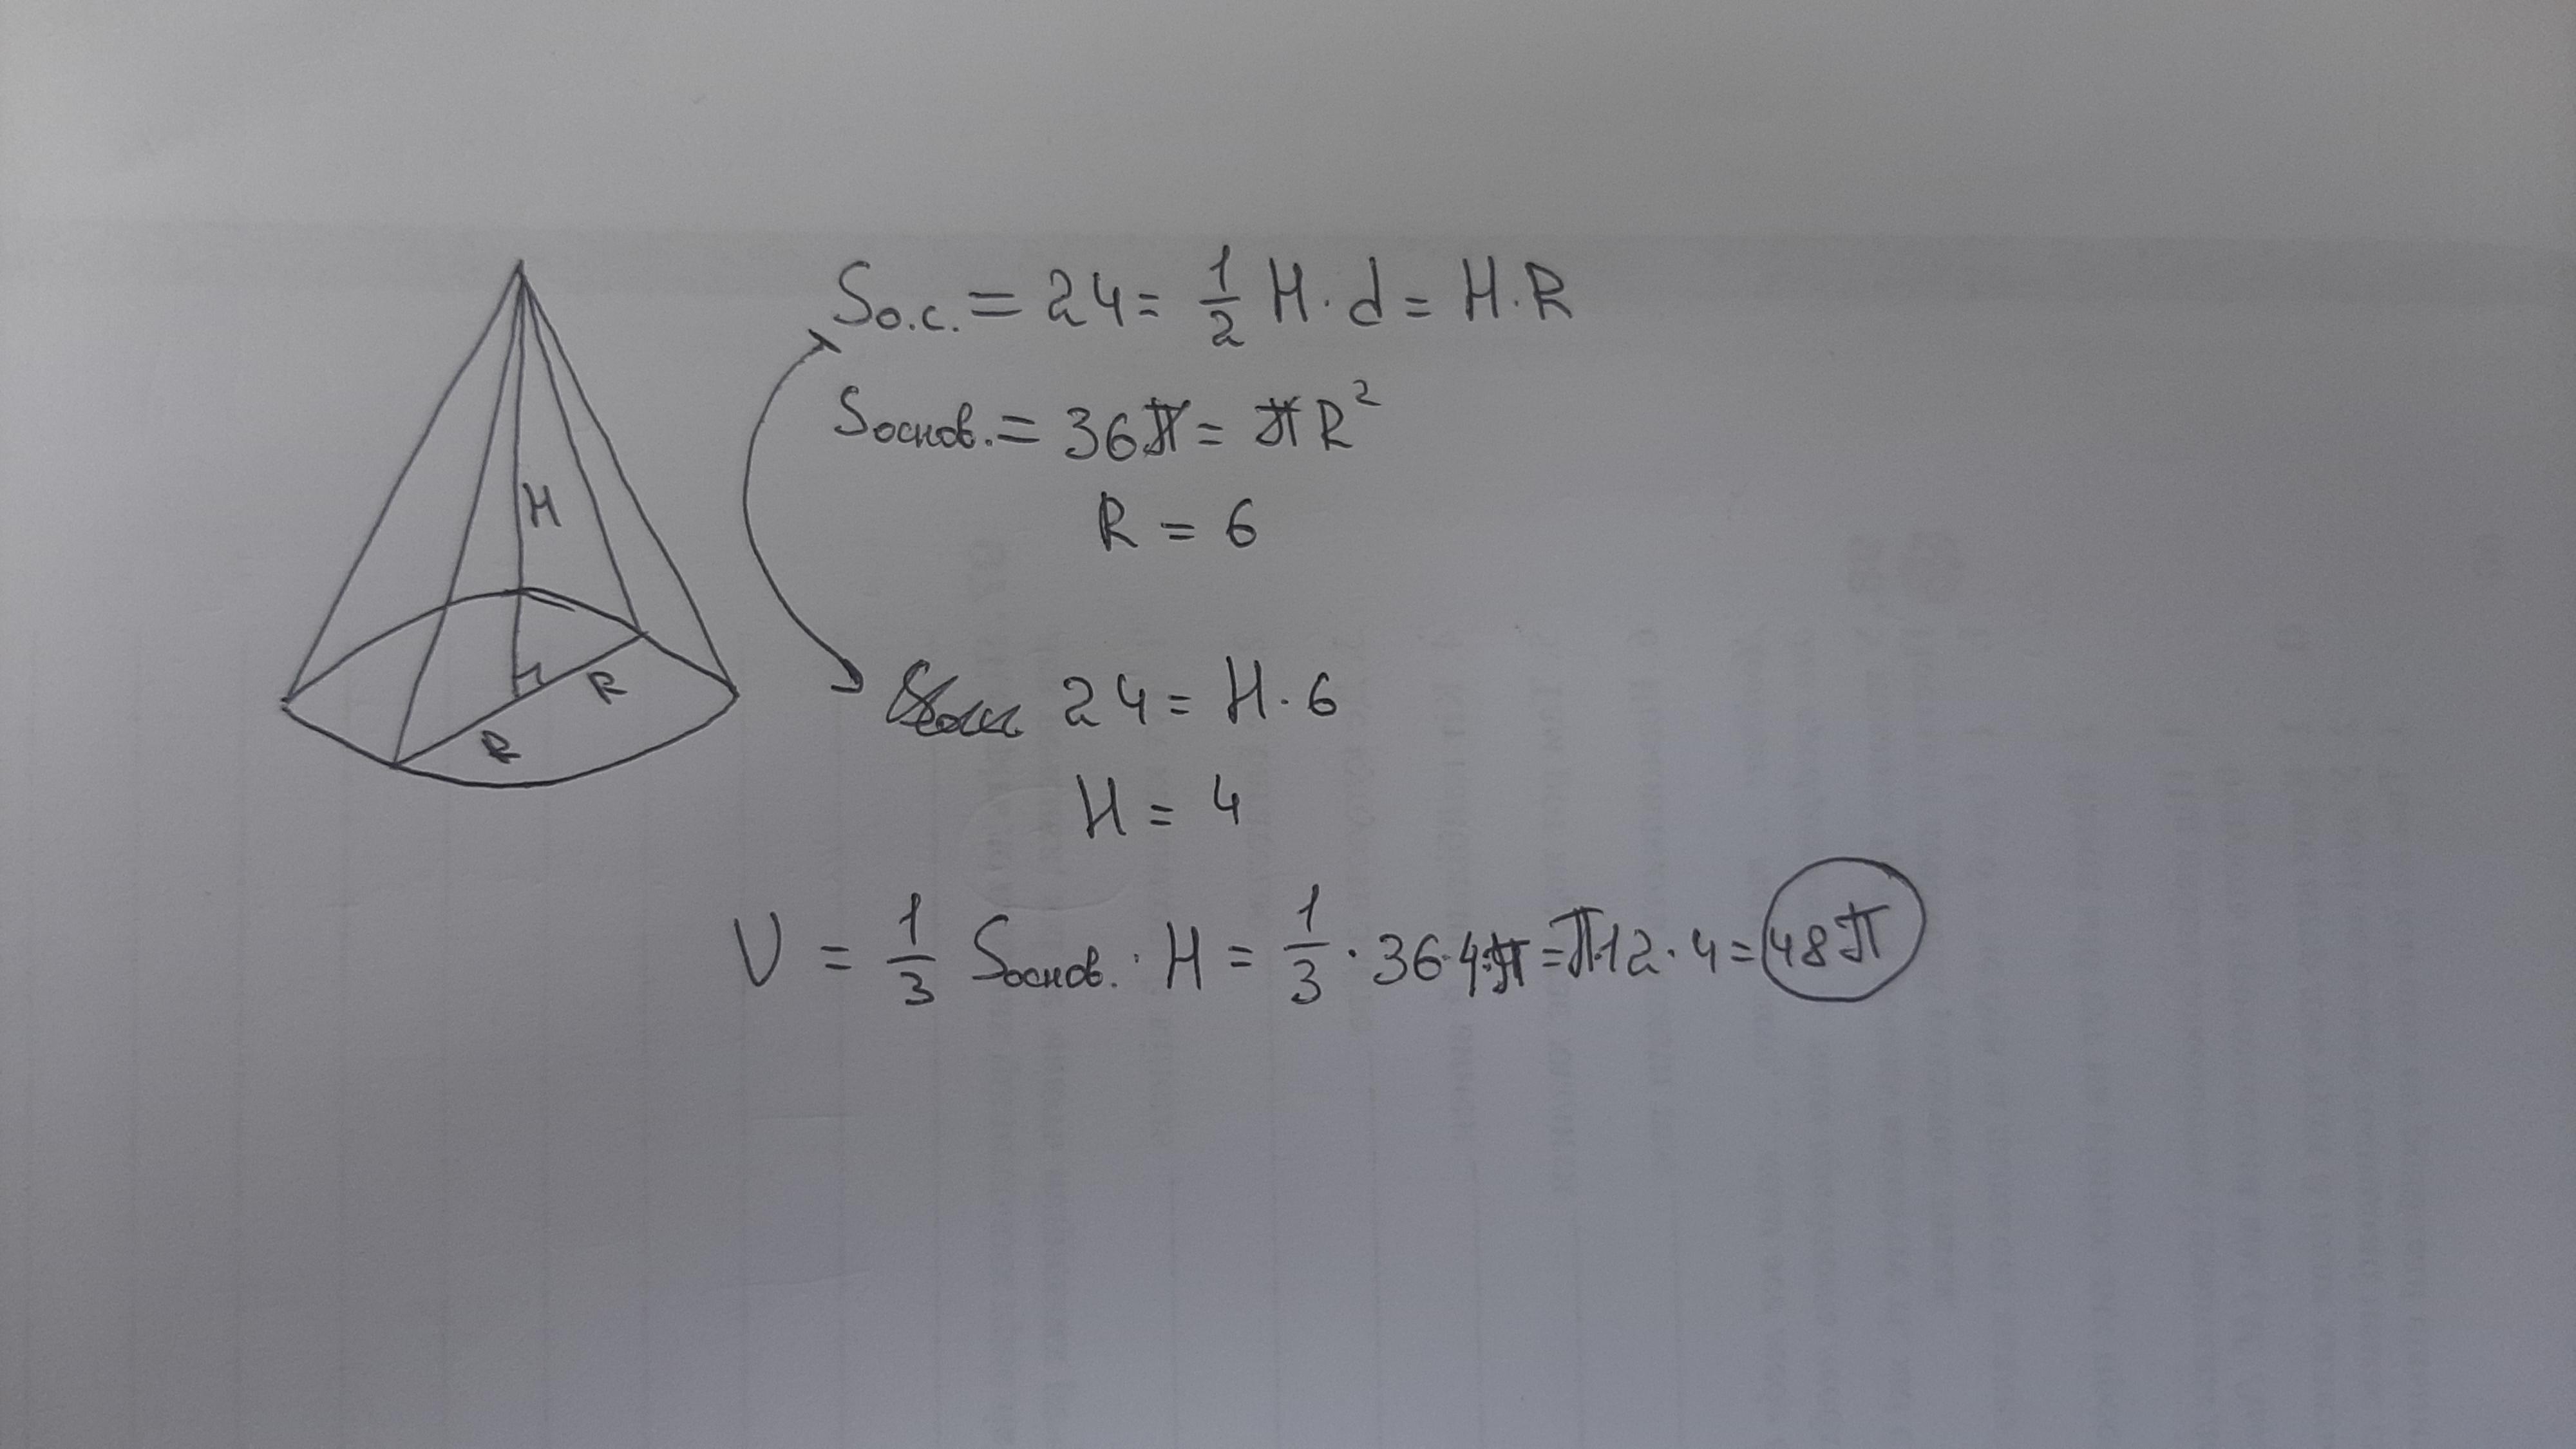 Sо.с. = 24 = 1/2 H · d = H · R
Sоснов. = 36π = πR²
R = 6
H
24 = H · 6
R
R
H = 4
V = 1/3 Sоснов. · H = 1/3 · 36 · 4 · π = π · 12 · 4 = 48π